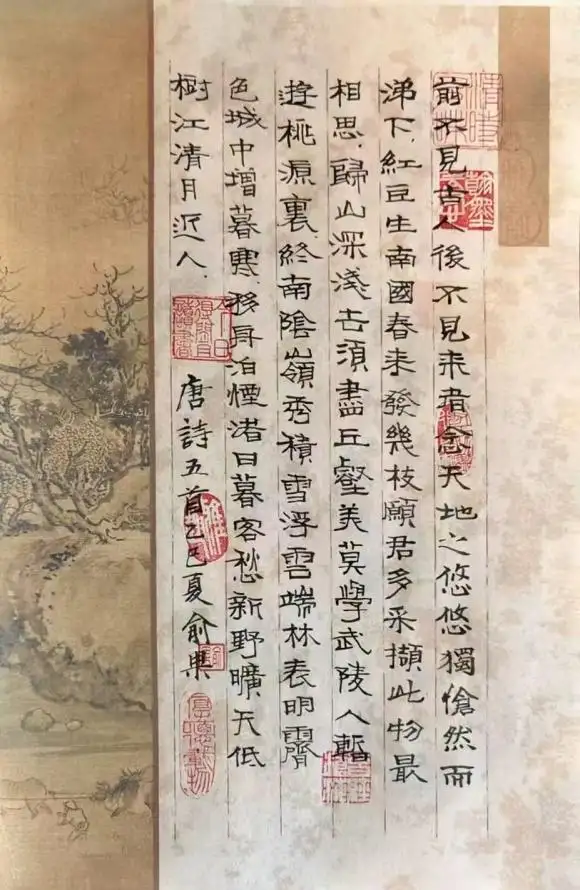 前不見古人後不見来者念天地之悠悠獨愴然而
涕下.紅豆生南國春来發幾枝願君多采擷此物最
相思.歸山深淺去須盡丘壑美莫學武陵人暫
遊桃源裏.終南陰嶺秀積雪浮雲端林表明霽
色城中增暮寒.移舟泊煙渚日暮客愁新野曠天低
樹江清月近人.
唐詩五首乙巳夏俞
厚德載物